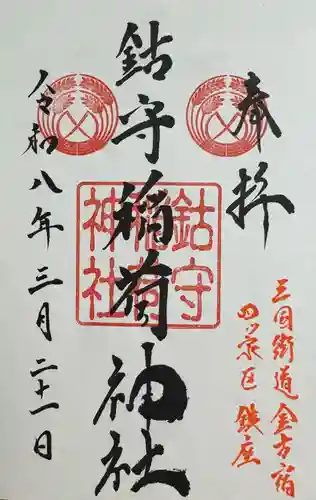 奉拝
三国街道金古宿
四ツ家区鎮座
鈷守稲荷神社
鈷守
稲荷
神社
令和八年三月二十一日